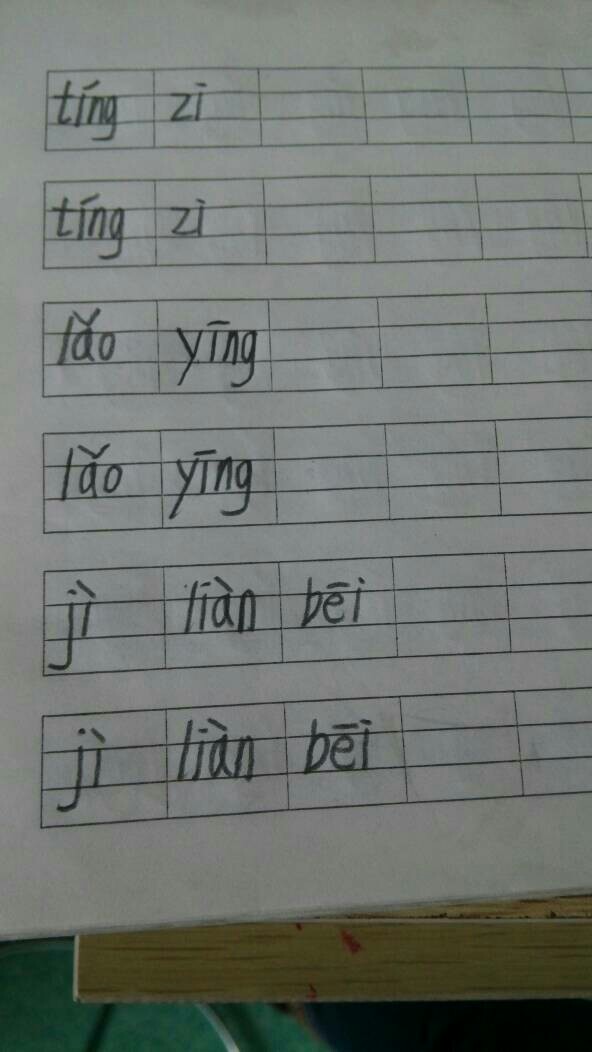 tíng zi
tíng zi
lǎo yīng
lǎo yīng
jì liàn bēi
jì liàn bēi